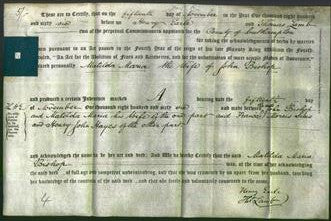 These are to Certify, that on the fifteenth day of November in the Year One thousand eight hundred
and sixty one before us Henry Earle and Thomas Lamb
two of the perpetual Commissioners appointed for the County of Southampton
for taking the acknowledgments of deeds by married
women pursuant to an Act passed in the Fourth Year of the reign of his late Majesty King William the Fourth
intituled "An Act for the Abolition of Fines and Recoveries, and for the substitution of more simple Modes of Assurance,"
appeared personally Matilda Maria the wife of John Bishop
and produced a certain Indenture marked A bearing date the fifteenth day
of November One thousand eight hundred and sixty one and made between John Bishop
and Matilda Maria his wife of the one part and Francis
and Henry John Hayes of the other part
and acknowledged the same to be her act and deed. And We do hereby Certify that the said Matilda Maria
Bishop was, at the time of her acknowledging
the said deed, of full age and competent understanding, and that she was examined by us apart from her husband, touching
her knowledge of the contents of the said deed, and that she freely and voluntarily consented to the same.
Henry Earle
Lamb
4